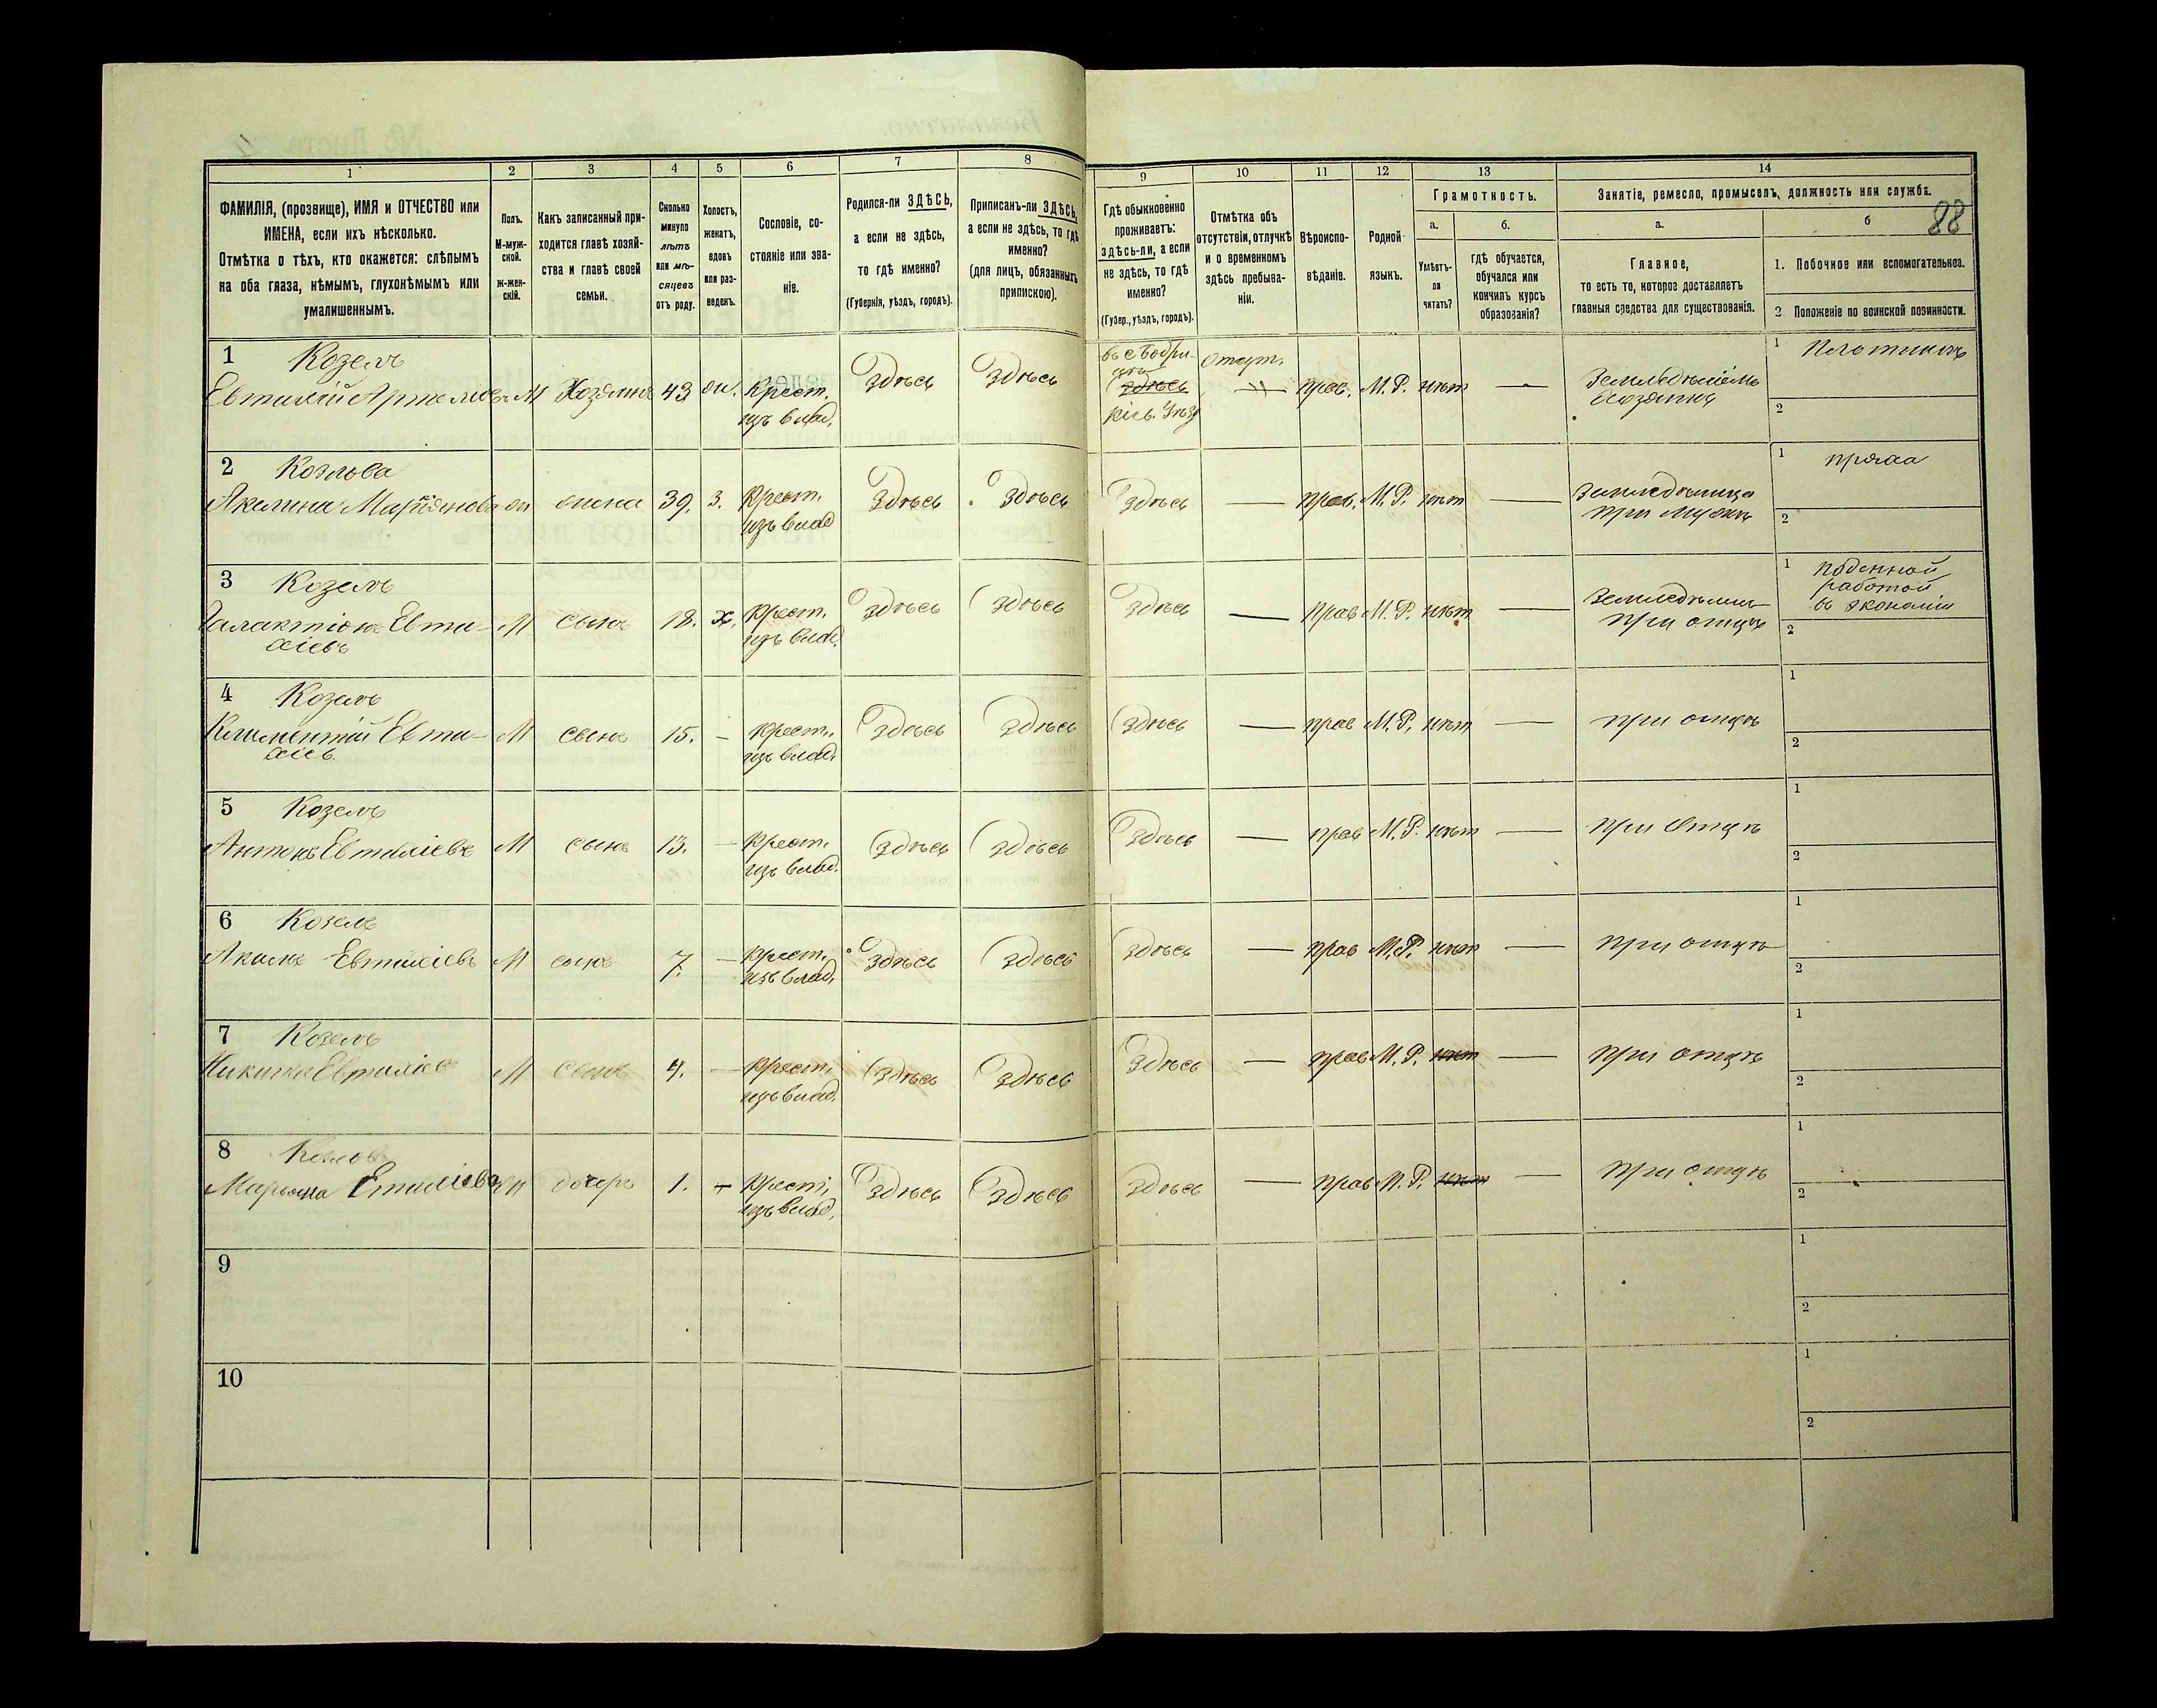 88
1 2 3 4 5 6 7 8 9 10 11 12 13 14
ФАМИЛІЯ, (прозвище), ИМЯ и ОТЧЕСТВО или
ИМЕНА, если ихъ нѣсколько.
Отмѣтка о тѣхъ, кто окажется: слѣпымъ
на оба глаза, нѣмымъ, глухонѣмымъ или
умалишеннымъ.
Полъ.
М-муж-
ской.
ж-жен-
скій.
Какъ записанный при-
ходится главѣ хозяй-
ства и главѣ своей
семьи.
Сколько
минуло
лѣтъ
или мѣ-
сяцевъ
отъ роду.
Холостъ,
женатъ,
вдовъ
или раз-
веденъ.
Сословіе, со-
стояніе или зва-
ніе.
Родился-ли ЗДѢСЬ,
а если не здѣсь,
то гдѣ именно?
(Губернія, уѣздъ, городъ).
Приписанъ-ли ЗДѢСЬ,
а если не здѣсь, то гдѣ
именно?
(для лицъ, обязанныхъ
припискою).
Гдѣ обыкновенно
проживаетъ:
здѣсь-ли, а если
не здѣсь, то гдѣ
именно?
(Губер., уѣздъ, городъ).
Отмѣтка объ
отсутствіи, отлучкѣ
и о временномъ
здѣсь пребыва-
ніи.
Вѣроиспо-
вѣданіе.
Родной
языкъ.
Грамотность.
а.
Умѣетъ-
ли
читать?
б.
гдѣ обучается,
обучался или
кончилъ курсъ
образованія?
Занятіе, ремесло, промыселъ, должность или служба.
а.
Главное,
то есть то, которое доставляетъ
главныя средства для существованія.
б
1. Побочное или вспомогательное.
2 Положеніе по воинской повинности.
1 Козелъ
Евтихій Артемовъ М Хозяинъ 43 Крест. Здѣсь Здѣсь здѣсь Отсут. прав. М.Р. нѣт — Земледѣліемъ 1 Плотникъ
изъ влад. хозяинъ 2
2 Козлова
Акилина жена 39. З. Крест. Здѣсь Здѣсь Здѣсь — прав. М.Р. нѣт — 1 пряха
изъ влад при мужѣ 2
3 Козелъ
Галактіонъ Евти- М сынъ 18. х. Крест. Здѣсь Здѣсь Здѣсь — прав М.Р. нѣт — 1 поденной
хіевъ изъ влад. при отцѣ работой
въ экономіи
2
4 Козелъ
Климентій Евти- М сынъ 15. — Крест. Здѣсь Здѣсь Здѣсь — прав М.Р. нѣт — при отцѣ 1
хіев. изъ влад. 2
5 Козелъ
Антонъ Евтихіевъ М сынъ 13. — Крест. Здѣсь Здѣсь Здѣсь — прав М.Р. нѣт — при Отцѣ 1
изъ влад. 2
6 Козелъ
Акимъ Евтихіевъ М сынъ 7. — Крест. Здѣсь Здѣсь Здѣсь — прав М.Р. нѣт — при отцѣ 1
изъ влад. 2
7 Козелъ
Никита Евтихіев М сынъ 4. — Крест. Здѣсь Здѣсь Здѣсь — прав М.Р. нѣт — при отцѣ 1
изъ влад. 2
8 Козлова
дочерь 1. — Крест. Здѣсь Здѣсь Здѣсь — прав М.Р. нѣт — при отцѣ 1
изъ влад. 2
9 1
2
10 1
2